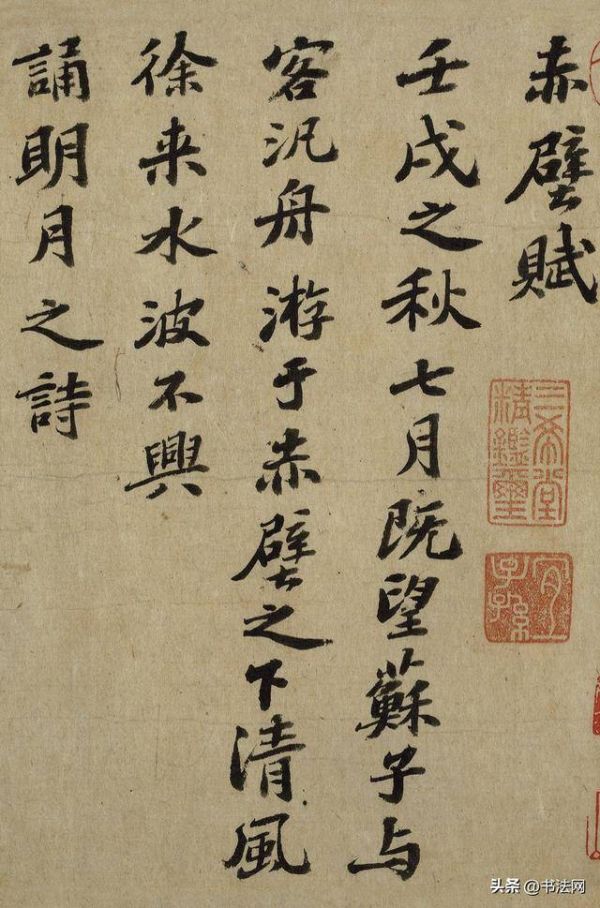 赤壁賦
壬戌之秋七月既望蘇子与
客汎舟游于赤壁之下清風
徐来水波不興
誦明月之詩
三希堂
精鑑璽
宜
子孫
头条 @书法网